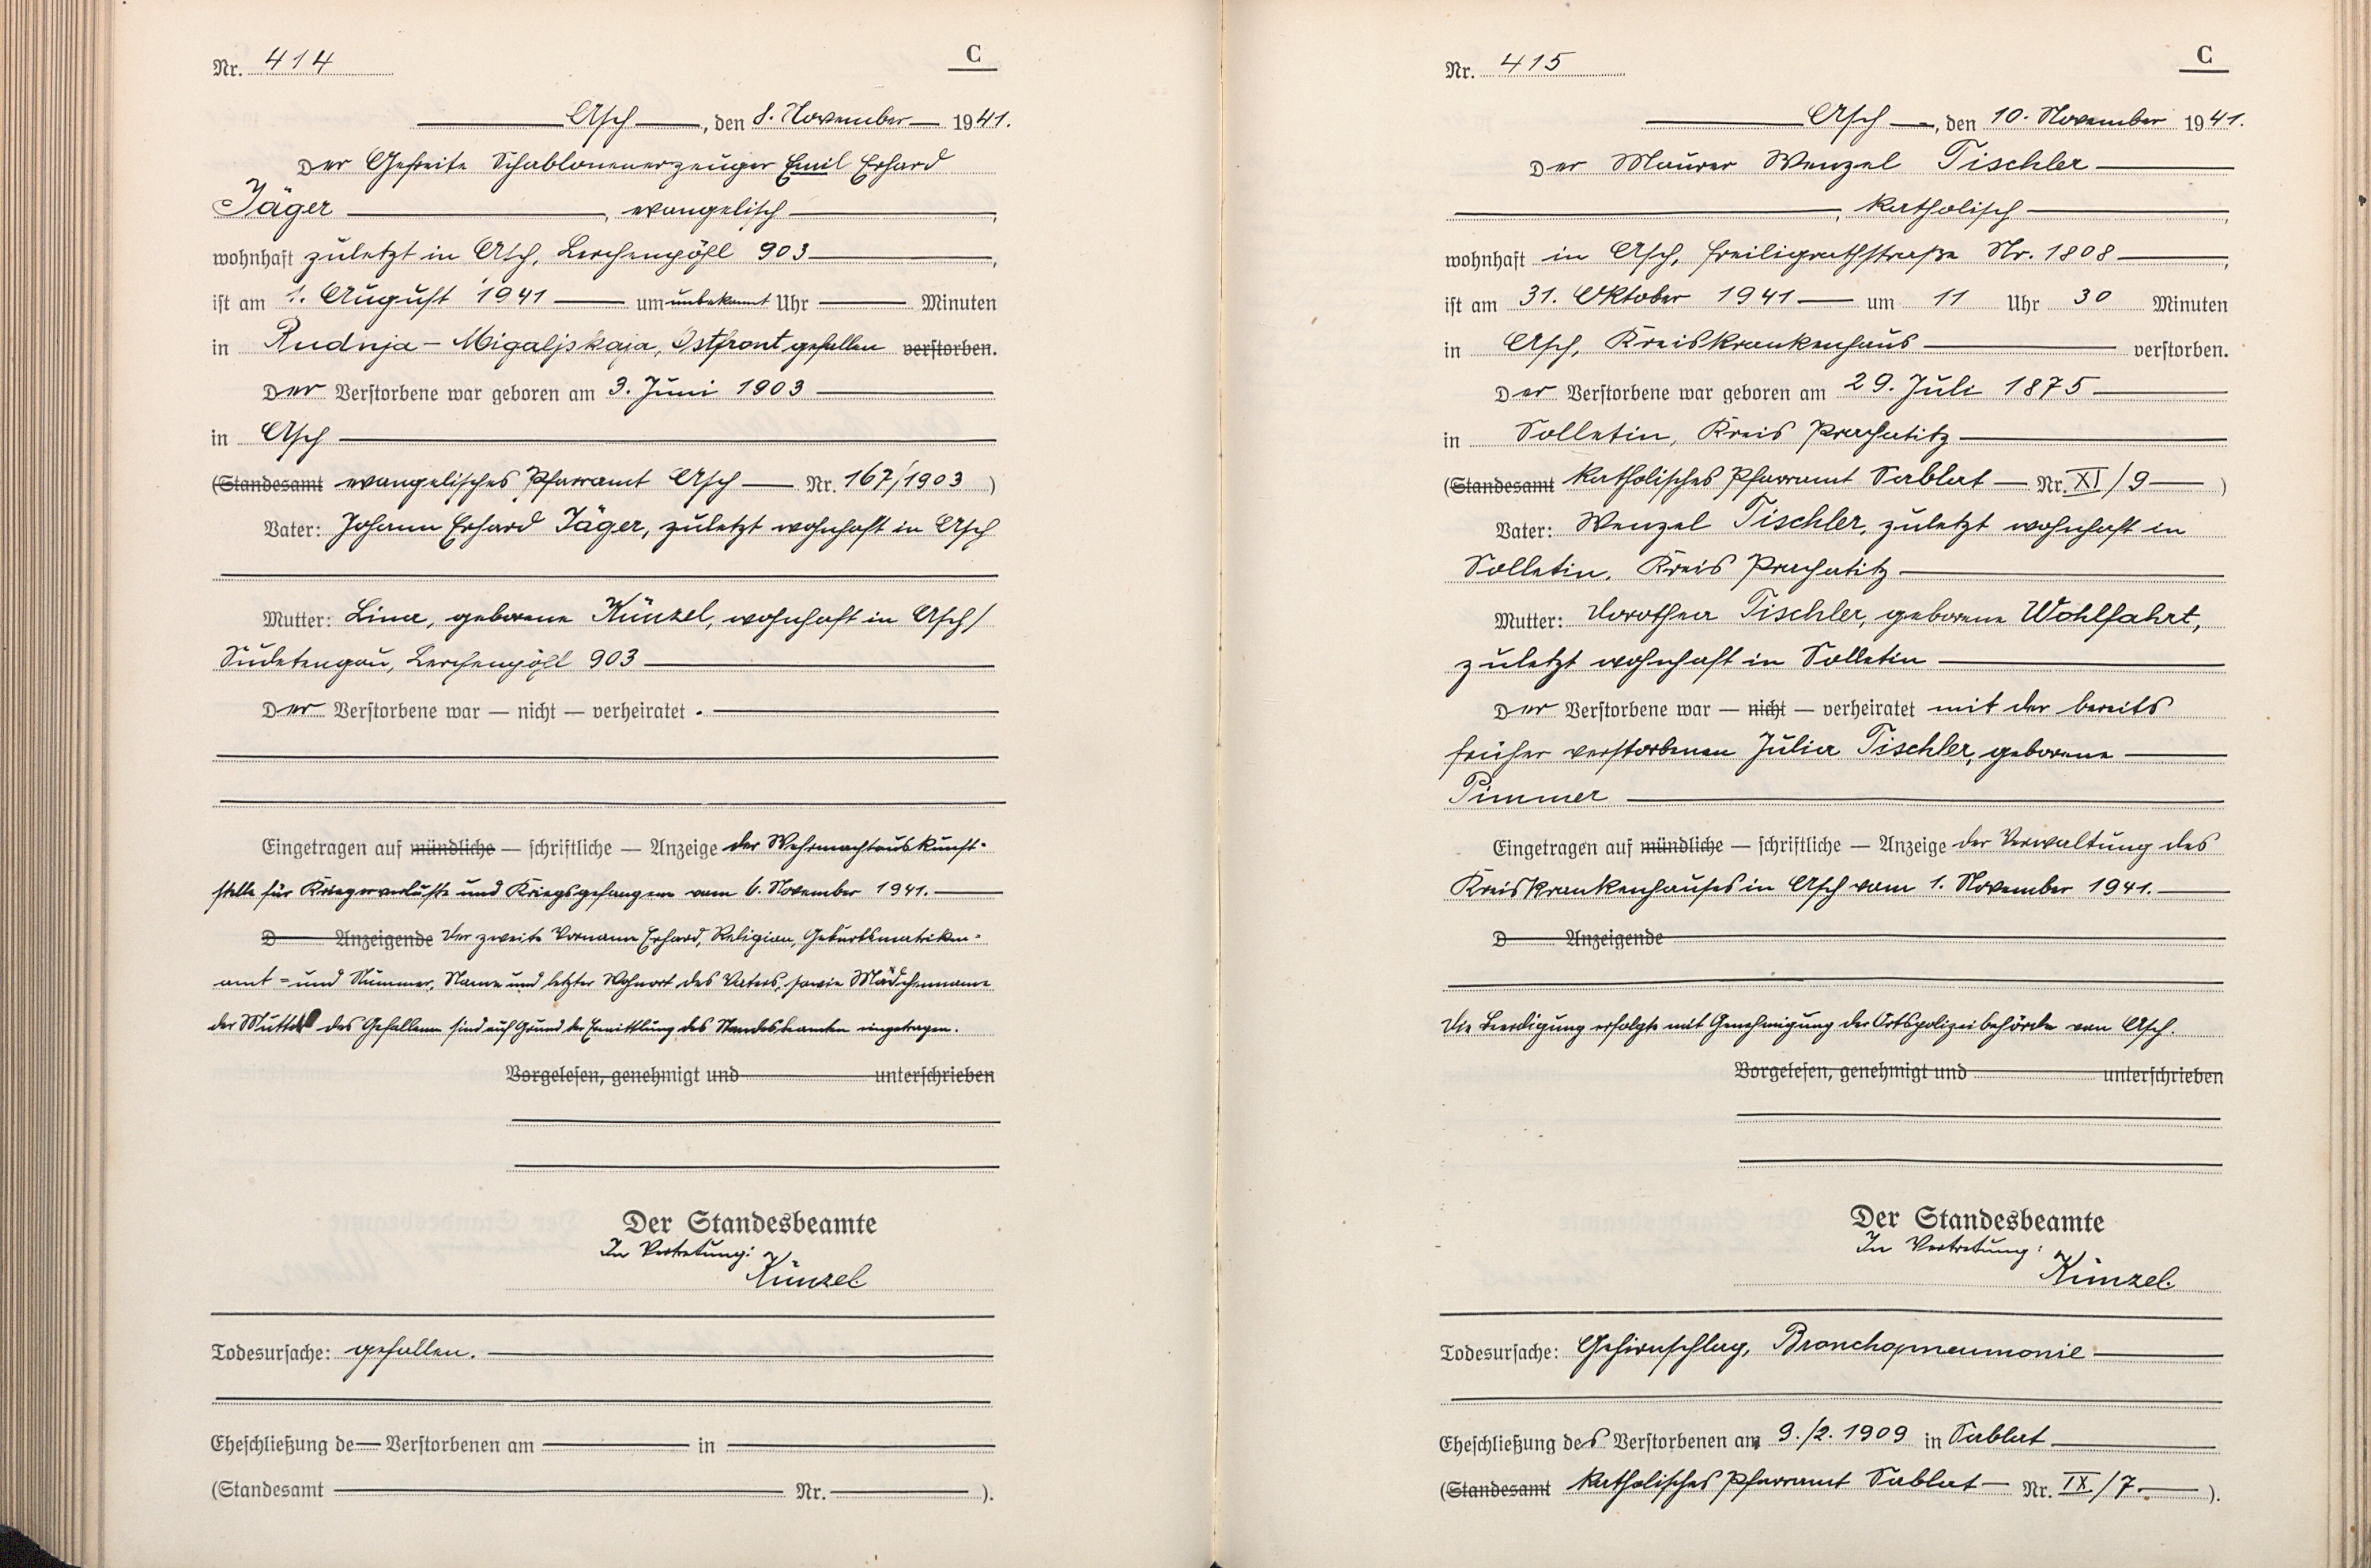 Nr. 414
C
Asch, den 8. November 1941.
Der Gefreite Schablonenerzeuger Emil Erhard
Jäger, evangelisch,
wohnhaft zuletzt in Asch, Lerchenpöhl 903,
ist am 1. August 1941 um unbekannt Uhr Minuten
in Rudnja - Migaljskaja, Ostfront gefallen verstorben.
Der Verstorbene war geboren am 3. Juni 1903
in Asch
(Standesamt evangelisches Pfarramt Asch Nr. 167/1903)
Vater: Johann Erhard Jäger, zuletzt wohnhaft in Asch
Mutter: Lina, geborene Künzel, wohnhaft in Asch/
Sudetengau, Lerchenpöhl 903
Der Verstorbene war — nicht — verheiratet.
Eingetragen auf mündliche — schriftliche — Anzeige der Wehrmachtauskunft-
stelle für Kriegerverluste und Kriegsgefangene vom 6. November 1941.
D Anzeigende Der zweite Vorname Erhard, Religion, Geburtsmatriken-
amt- und Nummer, Name und letzter Wohnort des Vaters, sowie Mädchenname
der Mutter des Gefallenen sind auf Grund der Ermittlung des Standesbeamten eingetragen.
Vorgelesen, genehmigt und unterschrieben
Der Standesbeamte
In Vertretung:
Künzel.
Todesursache: gefallen.
Eheschließung de Verstorbenen am in
(Standesamt Nr. ).
Nr. 415
C
Asch, den 10. November 1941.
Der Maurer Wenzel Tischler
, katholisch,
wohnhaft in Asch, Freiligrathstraße Nr. 1808,
ist am 31. Oktober 1941 um 11 Uhr 30 Minuten
in Asch, Kreiskrankenhaus verstorben.
Der Verstorbene war geboren am 29. Juli 1875
in Solletin, Kreis Prachatitz
(Standesamt katholisches Pfarramt Sablat Nr. XI/9)
Vater: Wenzel Tischler, zuletzt wohnhaft in
Solletin, Kreis Prachatitz
Mutter: Dorothea Tischler, geborene Wohlfahrt,
zuletzt wohnhaft in Solletin
Der Verstorbene war — nicht — verheiratet mit der bereits
früher verstorbenen Julia Tischler, geborene
Pimmer
Eingetragen auf mündliche — schriftliche — Anzeige der Verwaltung des
Kreiskrankenhauses in Asch vom 1. November 1941.
D Anzeigende
Die Beerdigung erfolgte mit Genehmigung der Ortspolizeibehörde von Asch.
Vorgelesen, genehmigt und unterschrieben
Der Standesbeamte
In Vertretung:
Künzel.
Todesursache: Gehirnschlag, Bronchopneumonie
Eheschließung des Verstorbenen am 9./2. 1909 in Sablat
(Standesamt katholisches Pfarramt Sablat Nr. IX/7.).